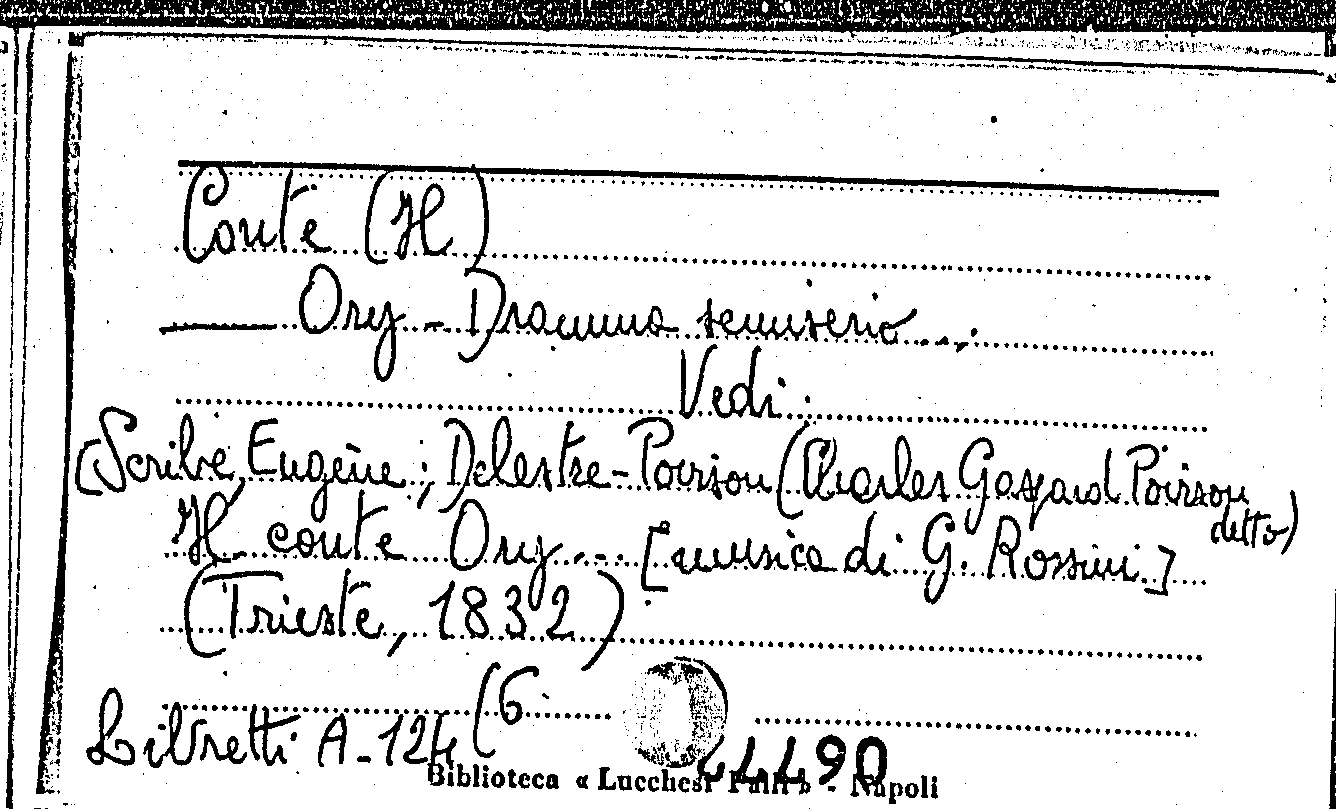 Conte (Il)
——— Ory - Dramma semiserio...
Vedi:
[Scribe, Eugène; Delestre-Poirson (Charles Gaspard Poirson detto)
Il conte Ory... [musica di G. Rossini]
(Trieste, 1832)
Libretti A-124 (6
Biblioteca « Lucchesi Palli » - Napoli